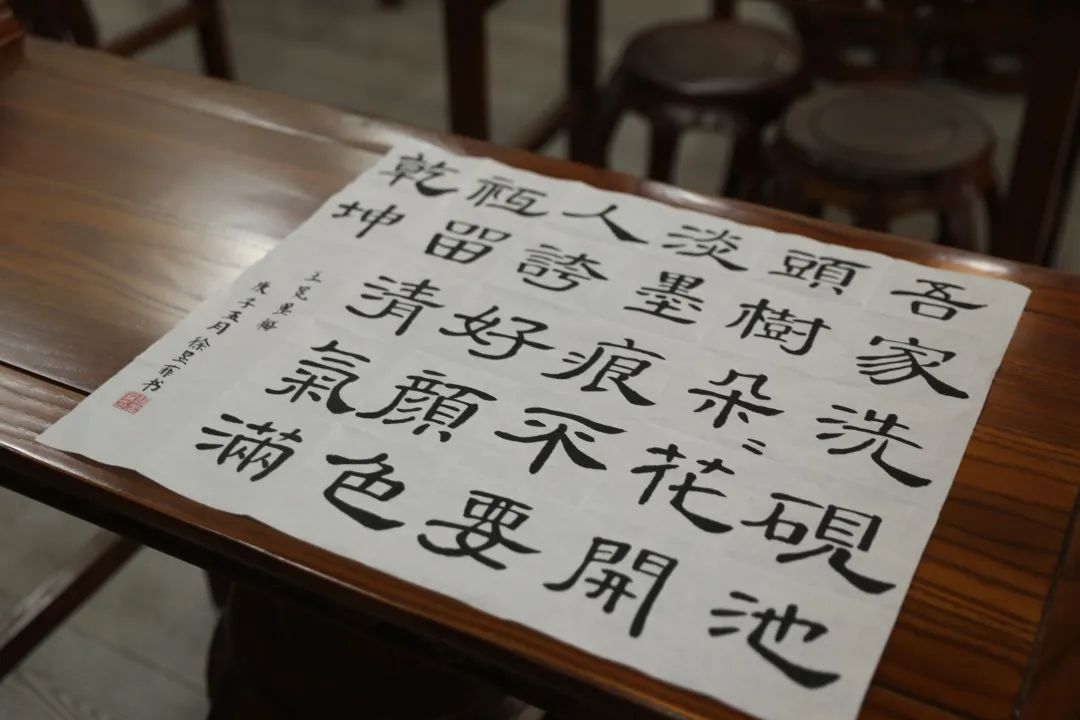 吾家洗硯池
頭樹朵〻花開
淡墨痕不要
人誇好顔色
祗留清氣滿
乾坤
王冕墨梅
庚子五月徐昱菲书